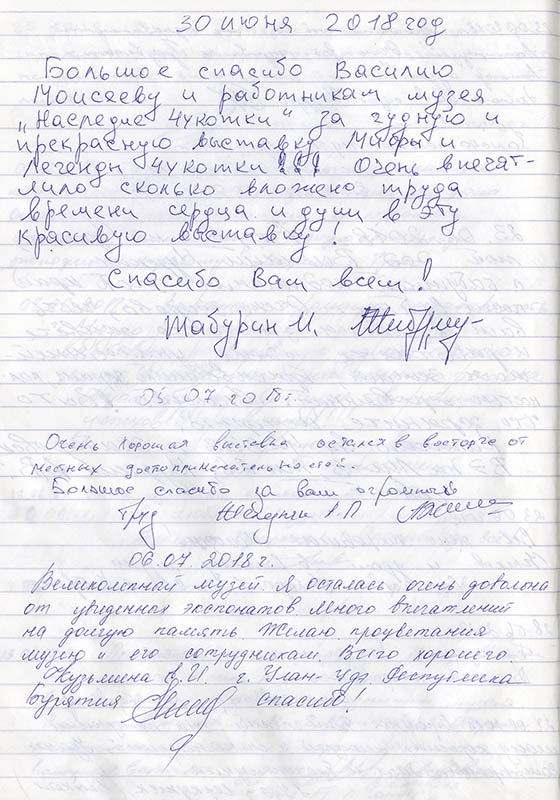 30 июня 2018 год
Большое спасибо Василию
Моисееву и работникам музея
„Наследие Чукотки“ за чудную и
прекрасную выставку Мифы и
Легенды Чукотки!!! Очень впечят-
лило сколько вложено труда
времени сердца и души в эту
красивую выставку!
Спасибо Вам всем!
Шабурин И.
05.07.2018г.
Очень хорошая выставка остался в восторге от
местных достопримечательностей.
Большое спасибо за ваш огромный
труд
06.07.2018г.
Великолепный музей. Я осталась очень довольна
от увиденных экспонатов. Много впечатлений
на долгую память. Желаю процветания
музею и его сотрудникам. Всего хорошего.
Кузьмина г. Улан-Удэ Республика
Бурятия спасибо!